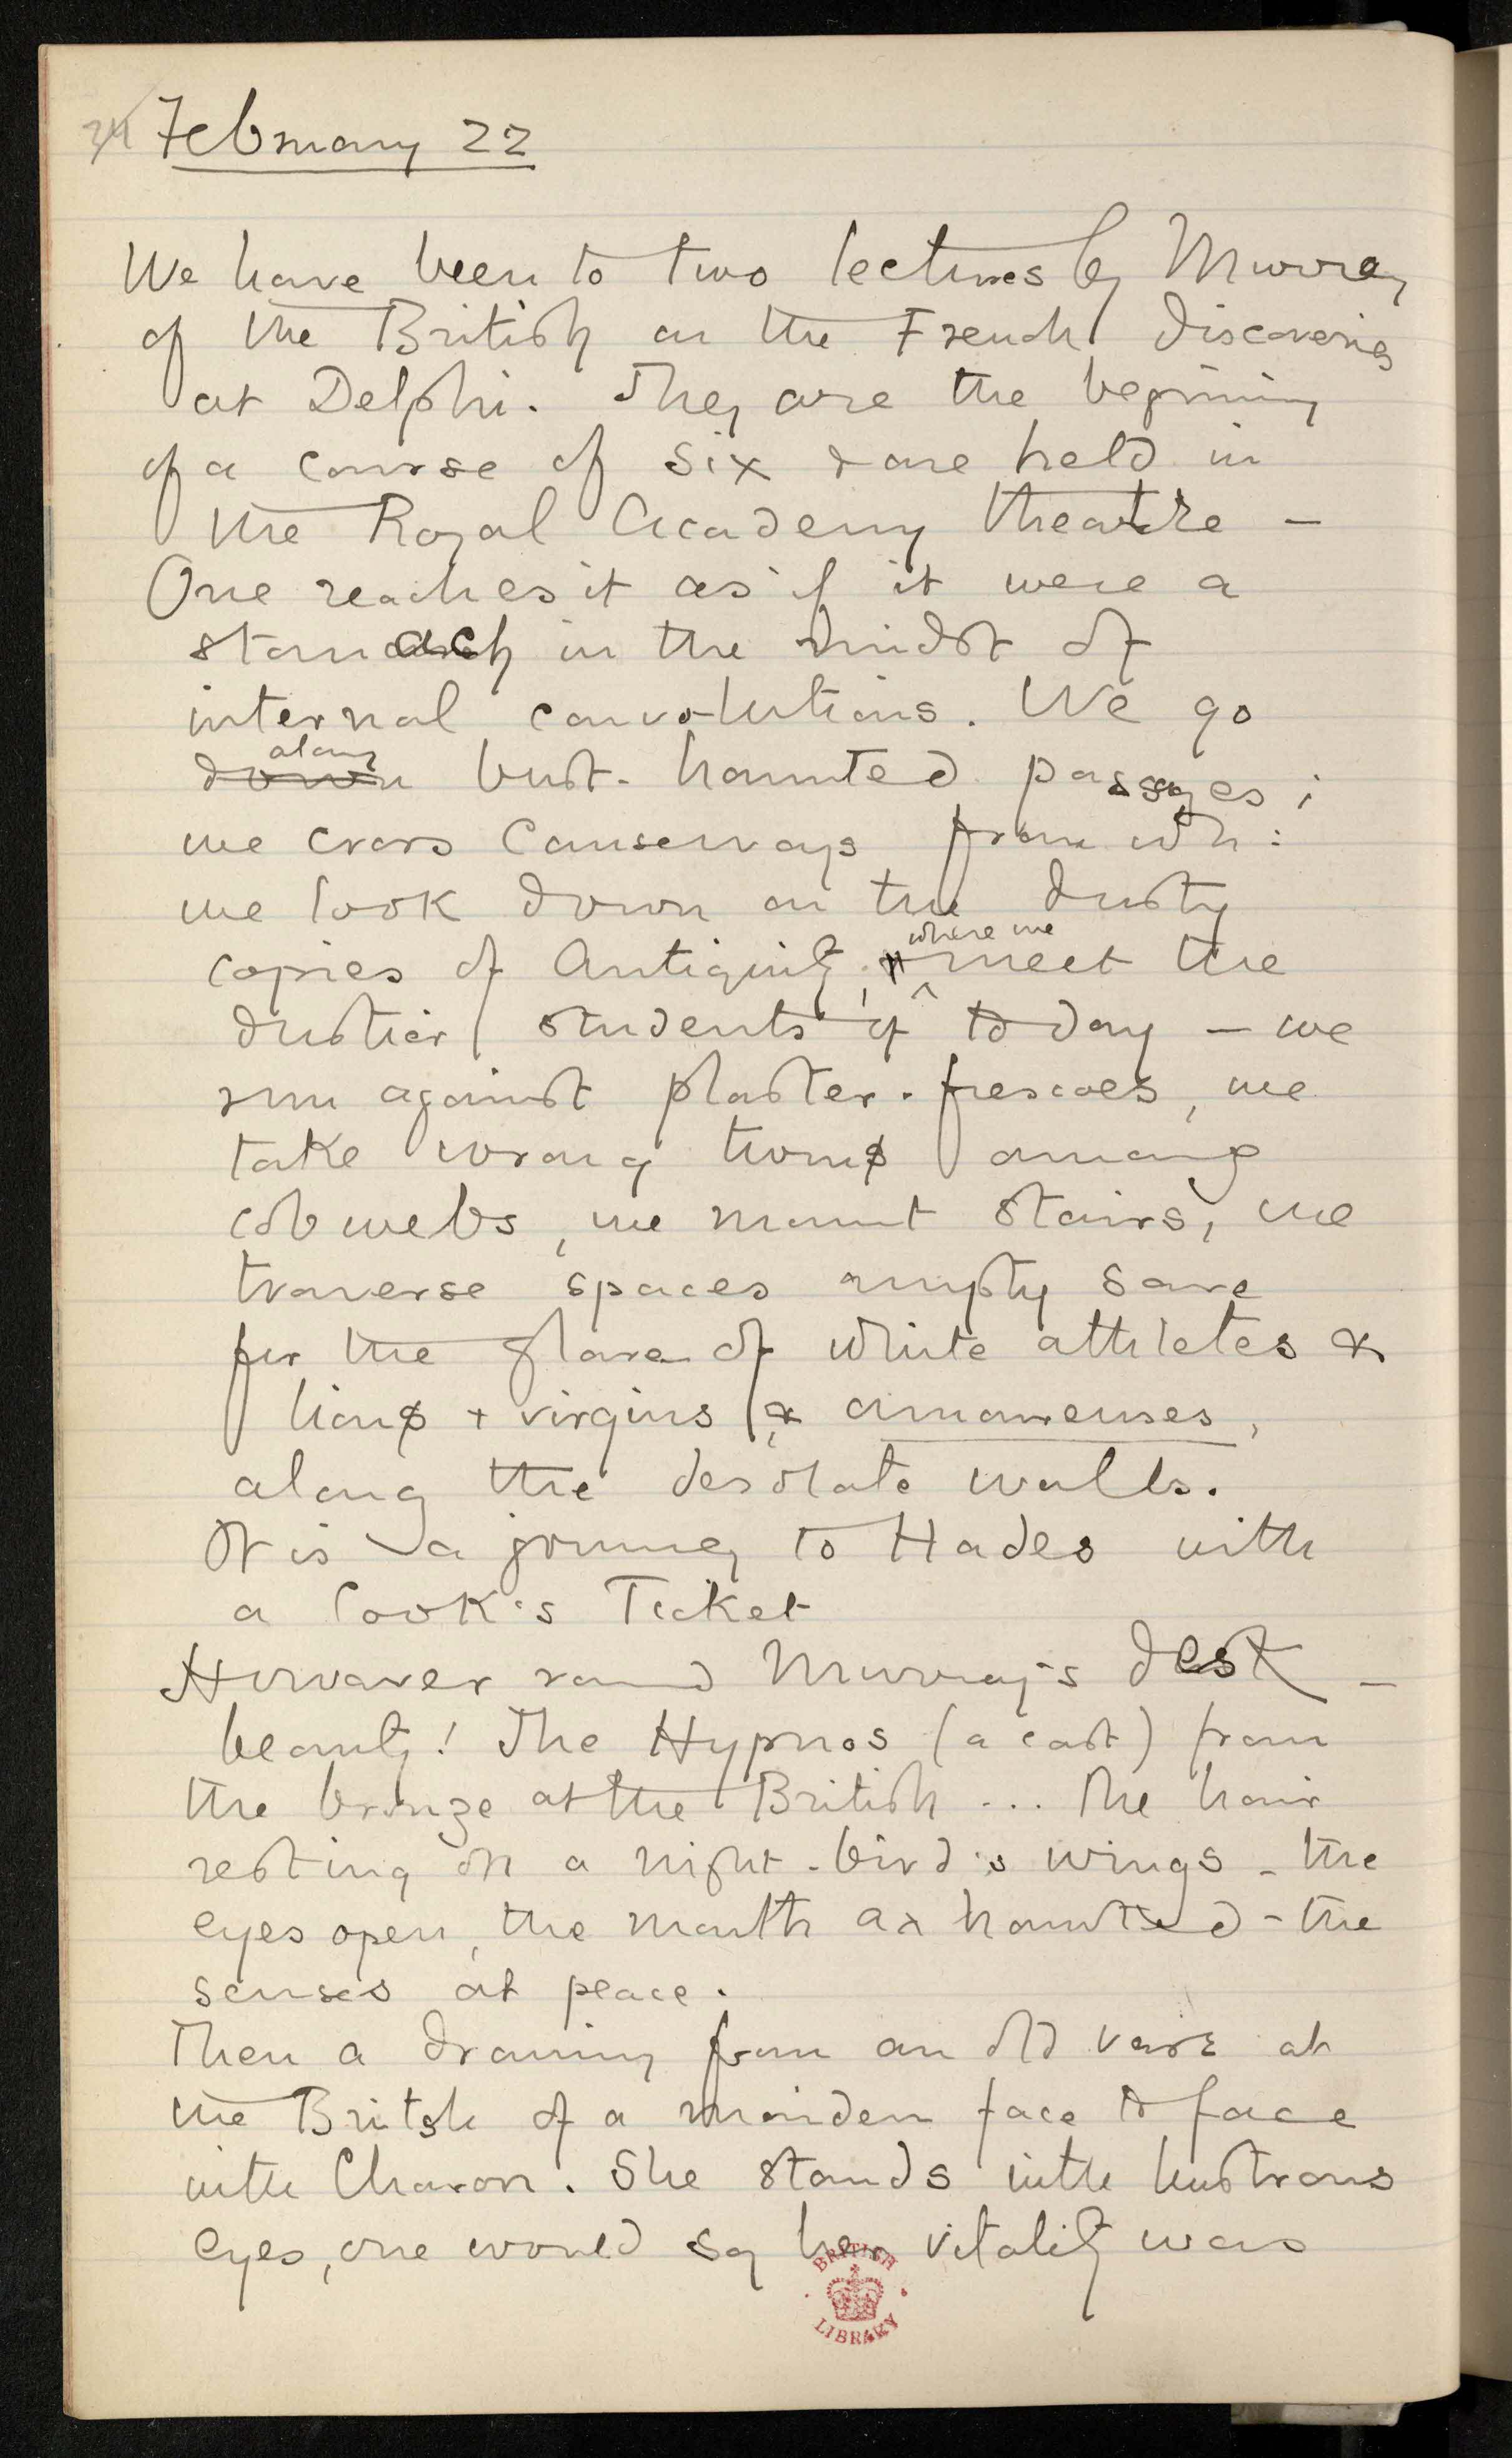 34 February 22
We have been to two lectures by Murray
of the British on the French discoveries
at Delphi. They are the beginning
of a course of six & are held in
the Royal Academy theatre –
One reaches it as if it were a
stomach in the midst of
internal convolutions. We go
down along bust-haunted passages;
we cross Causeways from wh:
we look down on the dusty
copies of Antiquity, where we meet the
dustier students of to day – we
run against plaster-frescoes, we
take wrong turns among
cobwebs, we mount stairs, we
traverse spaces empty save
for the glare of white athletes &
lions & virgins &
along the desolate walls.
It is a journey to Hades with
a Cook's Ticket
However round Murray's desk –
beauty! The Hypnos (a cast) from
the bronze at the British ... The hair
resting on a night-bird's wings – the
eyes open, the mouth as haunted – the
senses at peace.
Then a drawing from an old vase at
the British of a maiden face to face
with Charon. She stands with lustrous
eyes, one would say her vitality was
BRITISH
LIBRARY